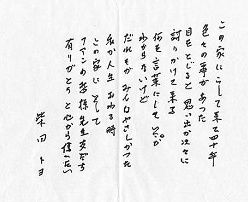 この家に こして来て四十年
色々な事があった
目をとじると 思い出が次々に
語りかけて来る
何を言葉にして いいか
わからないけど
だれもが みんなやさしかった
私が人生 おわる時
この家に そして
ファンの皆様 先生友だち
有りがとう と心から 伝えたい
柴田トヨ